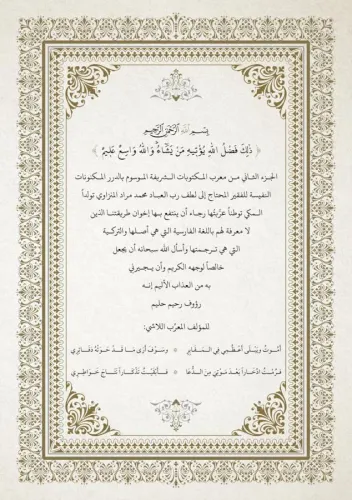 بسم الله الرحمن الرحيم
﴿ ذَلِكَ فَضْلُ اللَّهِ يُؤْتِيهِ مَنْ يَشَاءُ وَاللَّهُ وَاسِعٌ عَلِيمٌ ﴾
الجزء الثاني من معرب المكتوبات الشريفة الموسوم بالدرر المكنونات
النفيسة للفقير المحتاج إلى لطف رب العباد محمد مراد المنزاوي تولداً
المكي توطناً عرّبتُها رجاء أن ينتفع بها إخوان طريقتنا الذين
لا معرفة لهم باللغة الفارسية التي هي أصلها والتركية
التي هي ترجمتها وأسأل الله سبحانه أن يجعل
خالصاً لوجهه الكريم وأن يجيرني
به من العذاب الأليم إنه
رؤوف رحيم حليم
للمؤلف المعرّب اللاشي:
أموتُ ويَبْلَى أَعْظُمِي فِي المَقَابِرِ * وسَوْفَ أَرَى مَا قَدْ حَوَتْهُ دَفَاتِرِي
فَرُمْتُ ادِّخَاراً بَعْدَ مَوْتِي مِنَ الدُّعَا * فَأَبْقَيْتُ تَذْكَاراً نَتَاجَ خَوَاطِرِي